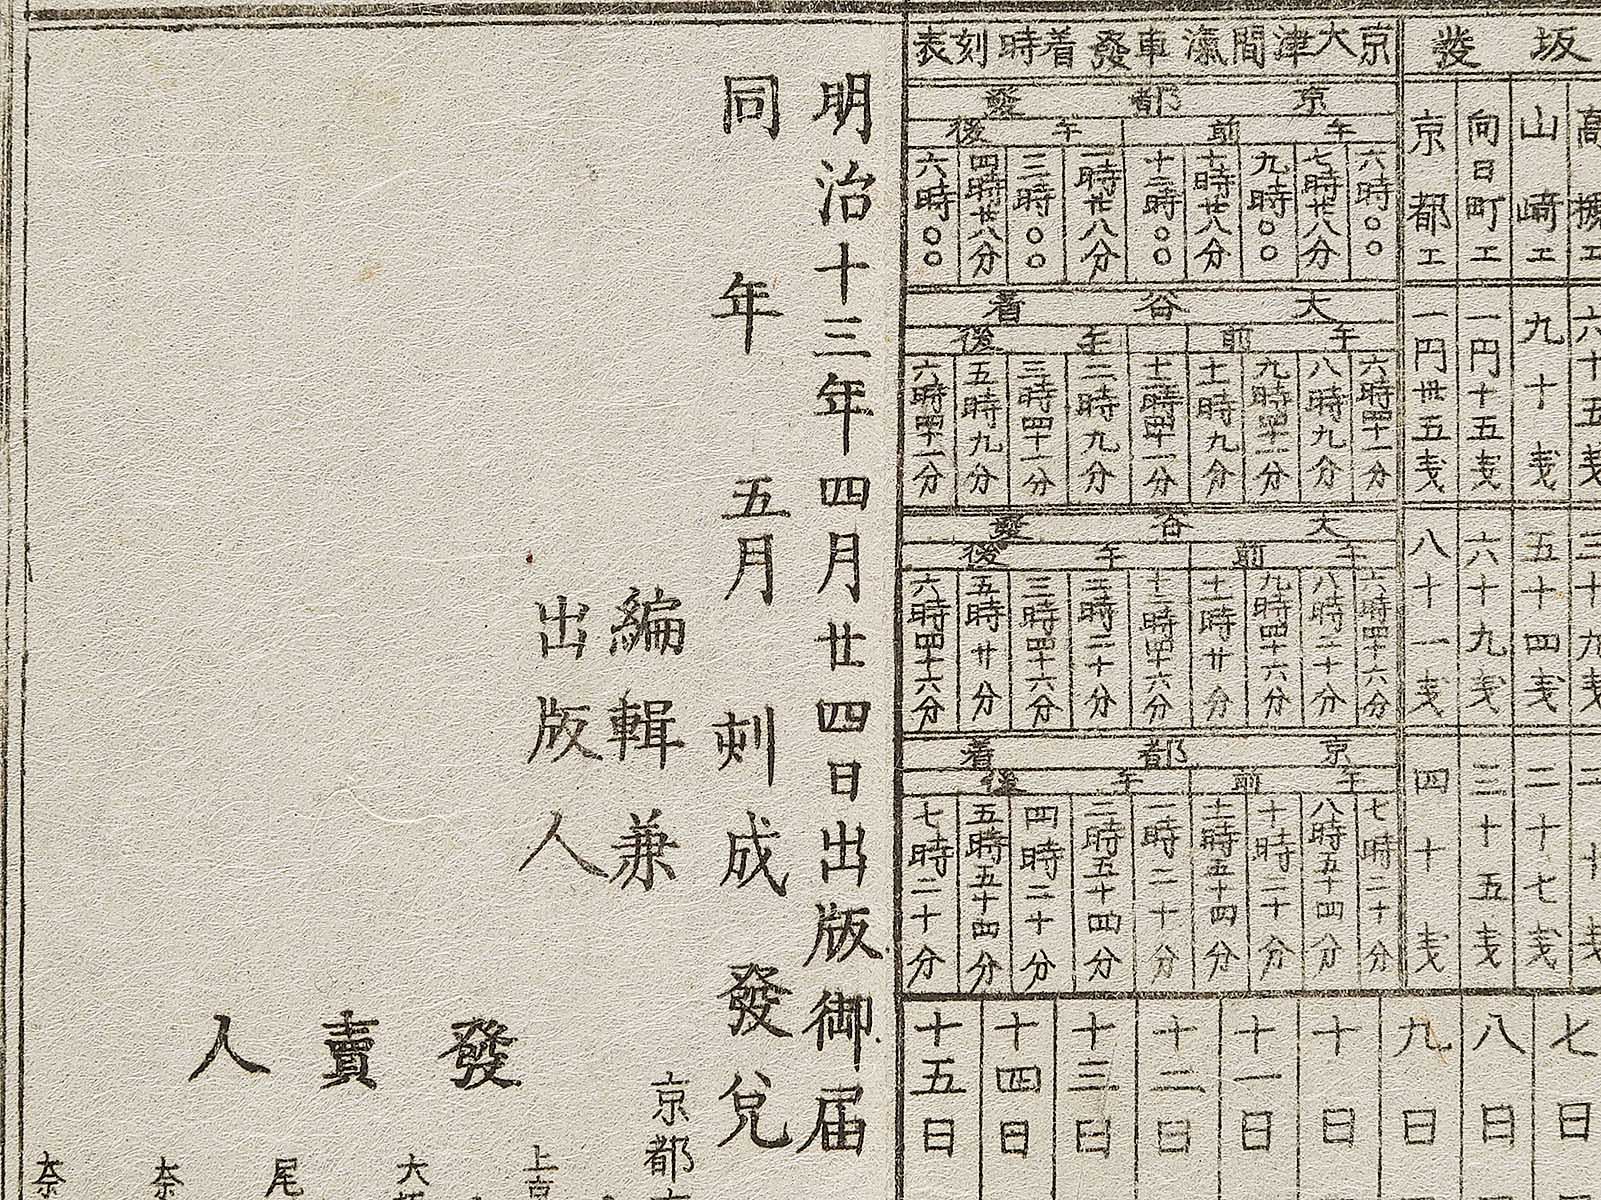 坂發
高槻エ
六十五戋
三十九戋
山崎エ
九十戋
五十四戋
二十七戋
向日町エ
一円十五戋
六十九戋
三十五戋
京都エ
一円卅五戋
八十一戋
四十戋
京大津間滊車發着時刻表
京都發
午前
午後
六時〇〇
七時廿八分
九時〇〇
十時廿八分
十二時〇〇
一時廿八分
三時〇〇
四時廿八分
六時〇〇
大谷着
午前
午後
六時四十一分
八時九分
九時四十一分
十一時九分
十二時四十一分
二時九分
三時四十一分
五時九分
六時四十一分
大谷發
午前
午後
六時四十六分
八時二十分
九時四十六分
十一時廿分
十二時四十六分
二時二十分
三時四十六分
五時廿分
六時四十六分
京都着
午前
午後
七時二十分
八時五十四分
十時二十分
十一時五十四分
一時二十分
二時五十四分
四時二十分
五時五十四分
七時二十分
七日
八日
九日
十日
十一日
十二日
十三日
十四日
十五日
明治十三年四月廿四日出版御届
同年五月刺成發兌
編輯兼
出版人
京都
發賣人
上京
大
尾
奈
奈